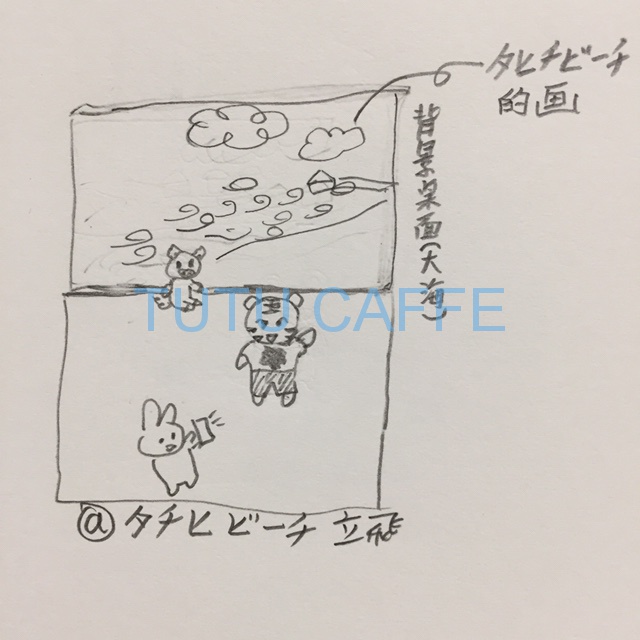 タヒチビーチ
的画
背景桌面(大海)
TUTU CAFFE
@タチヒビーチ 立飛